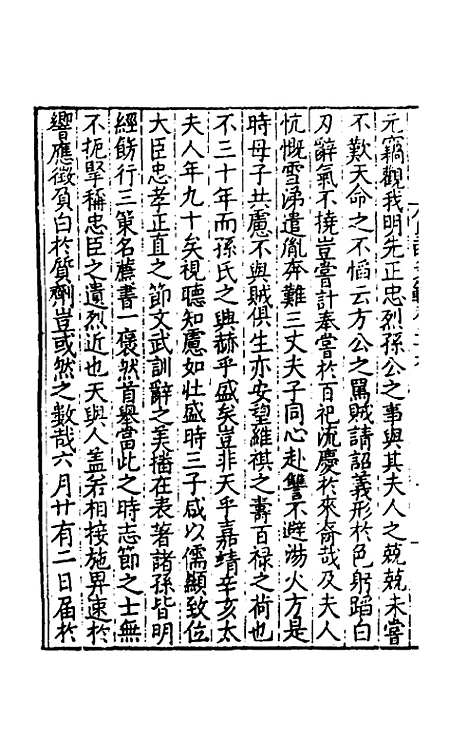 元竊觀我明先正忠烈孫公之事與其夫人之兢兢未嘗
不歎天命之不慆云方公之罵賊請詔義形於色躬蹈白
刃辭氣不撓豈嘗計奉嘗於百祀流慶於來裔哉及夫人
忼慨雪涕遣胤奔難三丈夫子同心赴讐不避湯火方是
時母子共慮不與賊俱生亦安望維祺之壽百禄之荷也
不三十年而孫氏之興赫乎盛矣豈非天乎嘉靖辛亥太
夫人年九十矣視聽知慮如壮盛時三子咸以儒顯致位
大臣忠孝正直之節文武訓辭之美播在表著諸孫皆明
經飭行三策名薦書一褒然首舉當此之時志節之士無
不扼掔稱忠臣之遺烈近也天與人盖若相接施畀速於
響應徵負白於質劑豈或然之數哉六月廿有二日届於